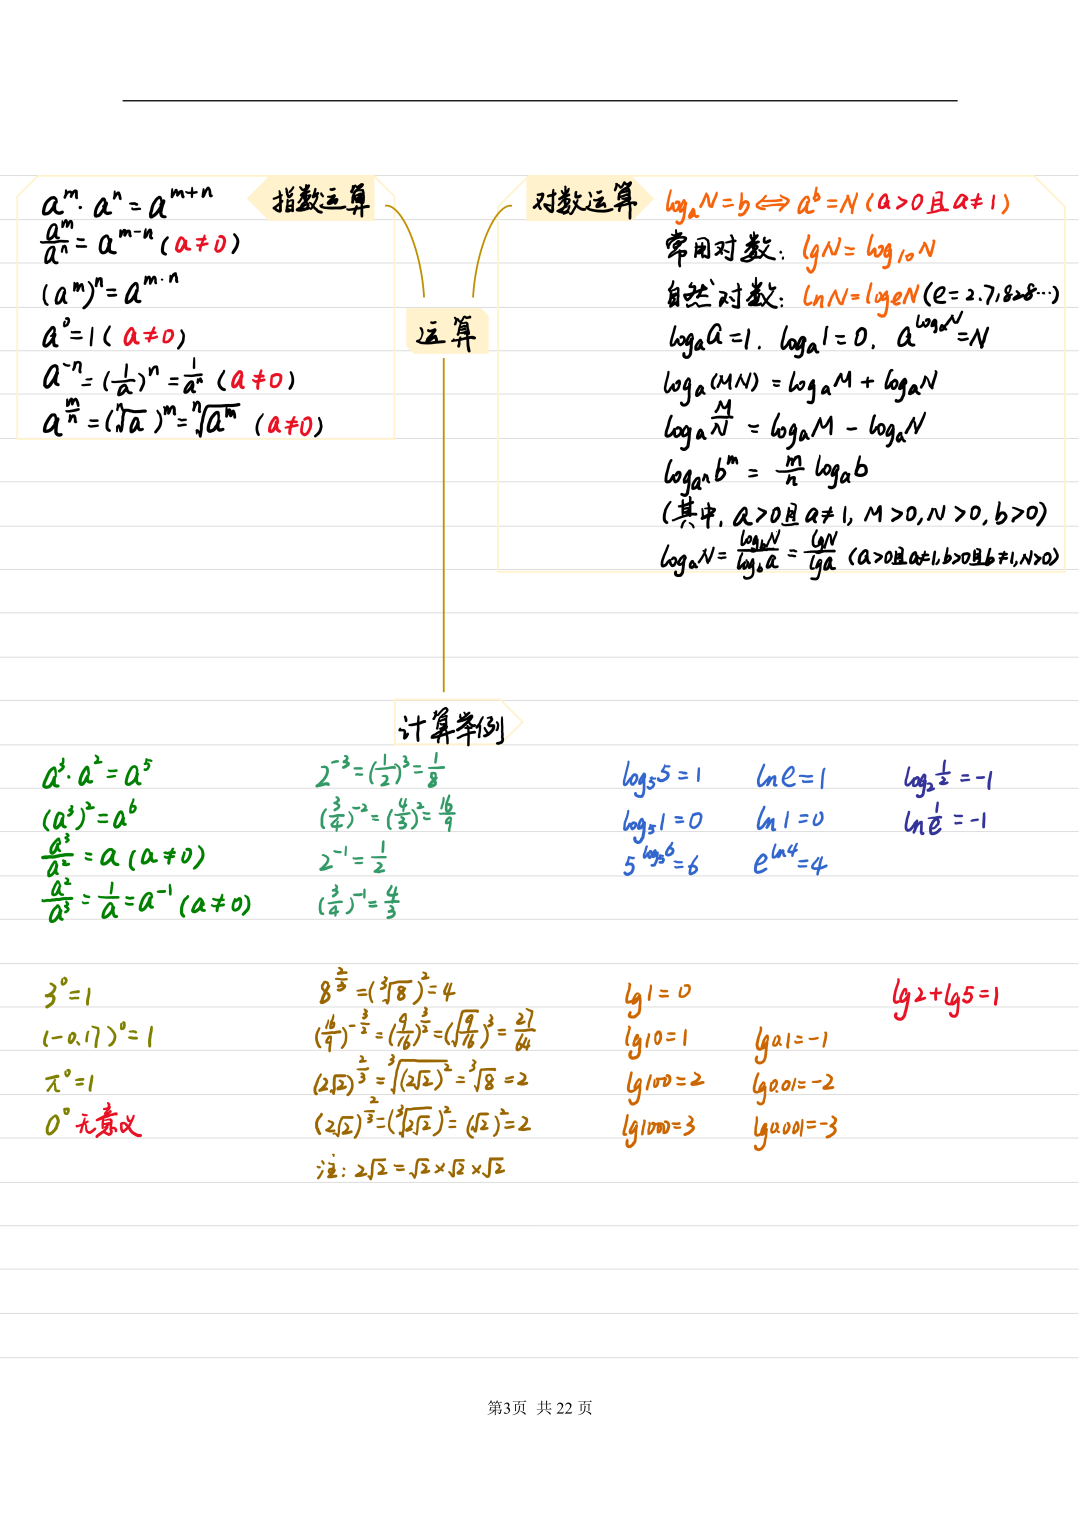 指数运算
a^m · a^n = a^{m+n}
a^m/a^n = a^{m-n} (a≠0)
(a^m)^n = a^{m·n}
a^0 = 1 ( a≠0)
a^{-n} = (1/a)^n = 1/a^n (a≠0)
a^{m/n} = (ⁿ√a)^m = ⁿ√a^m (a≠0)
运算
对数运算
log_a N = b ⟺ a^b = N (a>0且a≠1)
常用对数: lgN = log_10 N
自然对数: lnN = logeN (e=2.71828…)
log_a a = 1. log_a 1 = 0. a^{log_a N} = N
log_a(MN) = log_a M + log_a N
log_a M/N = log_a M - log_a N
log_{a^n} b^m = m/n log_a b
(其中, a>0且a≠1, M>0, N>0, b>0)
log_a N = log_b N/log_b a = lgN/lga (a>0且a≠1, b>0且b≠1, N>0)
计算举例
a^3 · a^2 = a^5
(a^3)^2 = a^6
a^3/a^2 = a (a≠0)
a^2/a^3 = 1/a = a^{-1} (a≠0)
2^{-3} = (1/2)^3 = 1/8
(3/4)^{-2} = (4/3)^2 = 16/9
2^{-1} = 1/2
(3/4)^{-1} = 4/3
log_5 5 = 1
log_5 1 = 0
5^{log_5 6} = 6
ln e = 1
ln 1 = 0
e^{ln4} = 4
log_2 1/2 = -1
ln 1/e = -1
3^0 = 1
(-0.17)^0 = 1
π^0 = 1
0^0 无意义
8^{2/3} = (³√8)^2 = 4
(16/9)^{-3/2} = (9/16)^{3/2} = (√9/16)^3 = 27/64
(2√2)^{2/3} = ³√(2√2)^2 = ³√8 = 2
(2√2)^{2/3} = (³√2√2)^2 = (√2)^2 = 2
注: 2√2 = √2×√2×√2
lg1 = 0
lg10 = 1
lg100 = 2
lg1000 = 3
lg0.1 = -1
lg0.01 = -2
lg0.001 = -3
lg2+lg5=1
第3页 共 22 页